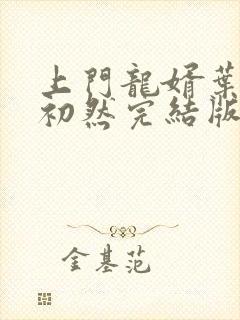 上門龍婿葉
初然完結版
金基范